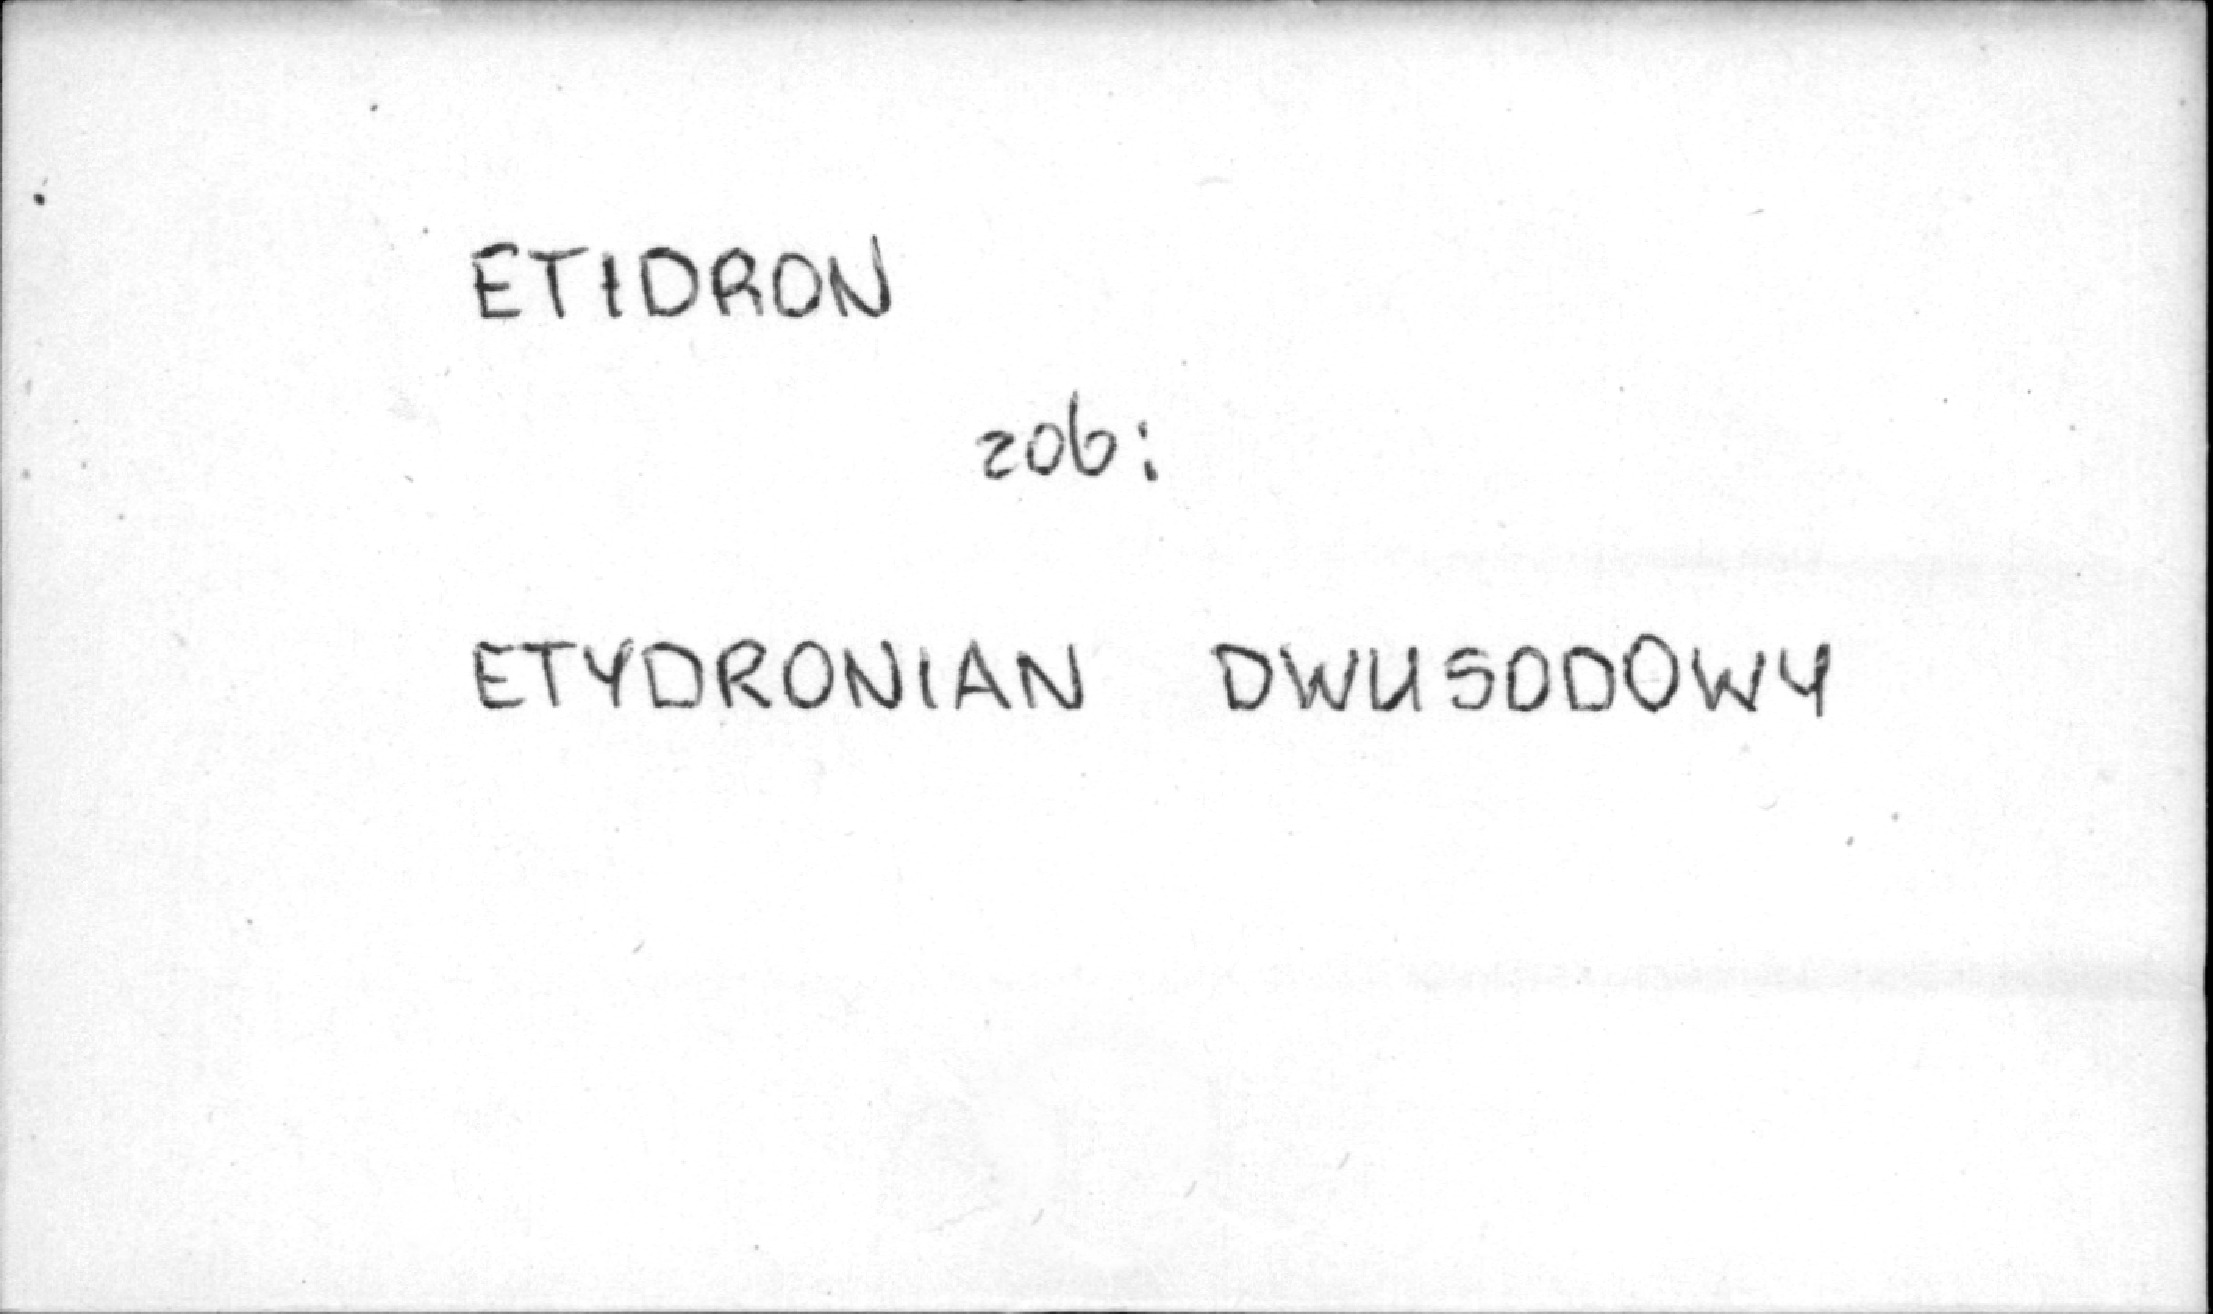 ETIDRON
zob:
ETYDRONIAN DWUSODOWY